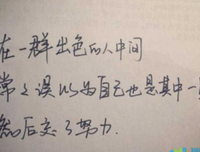 在一群出色的人中间
常常误以为自己也是其中一
然后交了努力.